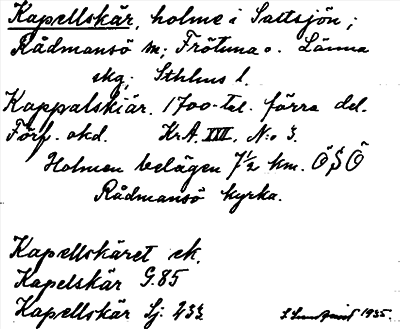 Kapellskär, holme i Saltsjön;
Rådmansö sn; Frötuna o. Länna
skg; Sthlms l.
Kappalskiär. 1700-tal. förra del.
Förf. okd. KrA. XVII. N:o 3.
Holmen belägen 7½ km. ÖSÖ
Rådmansö kyrka.
Kapellskäret ek.
Kapelskär G.85
Kapellskär Sj. 233
1935.